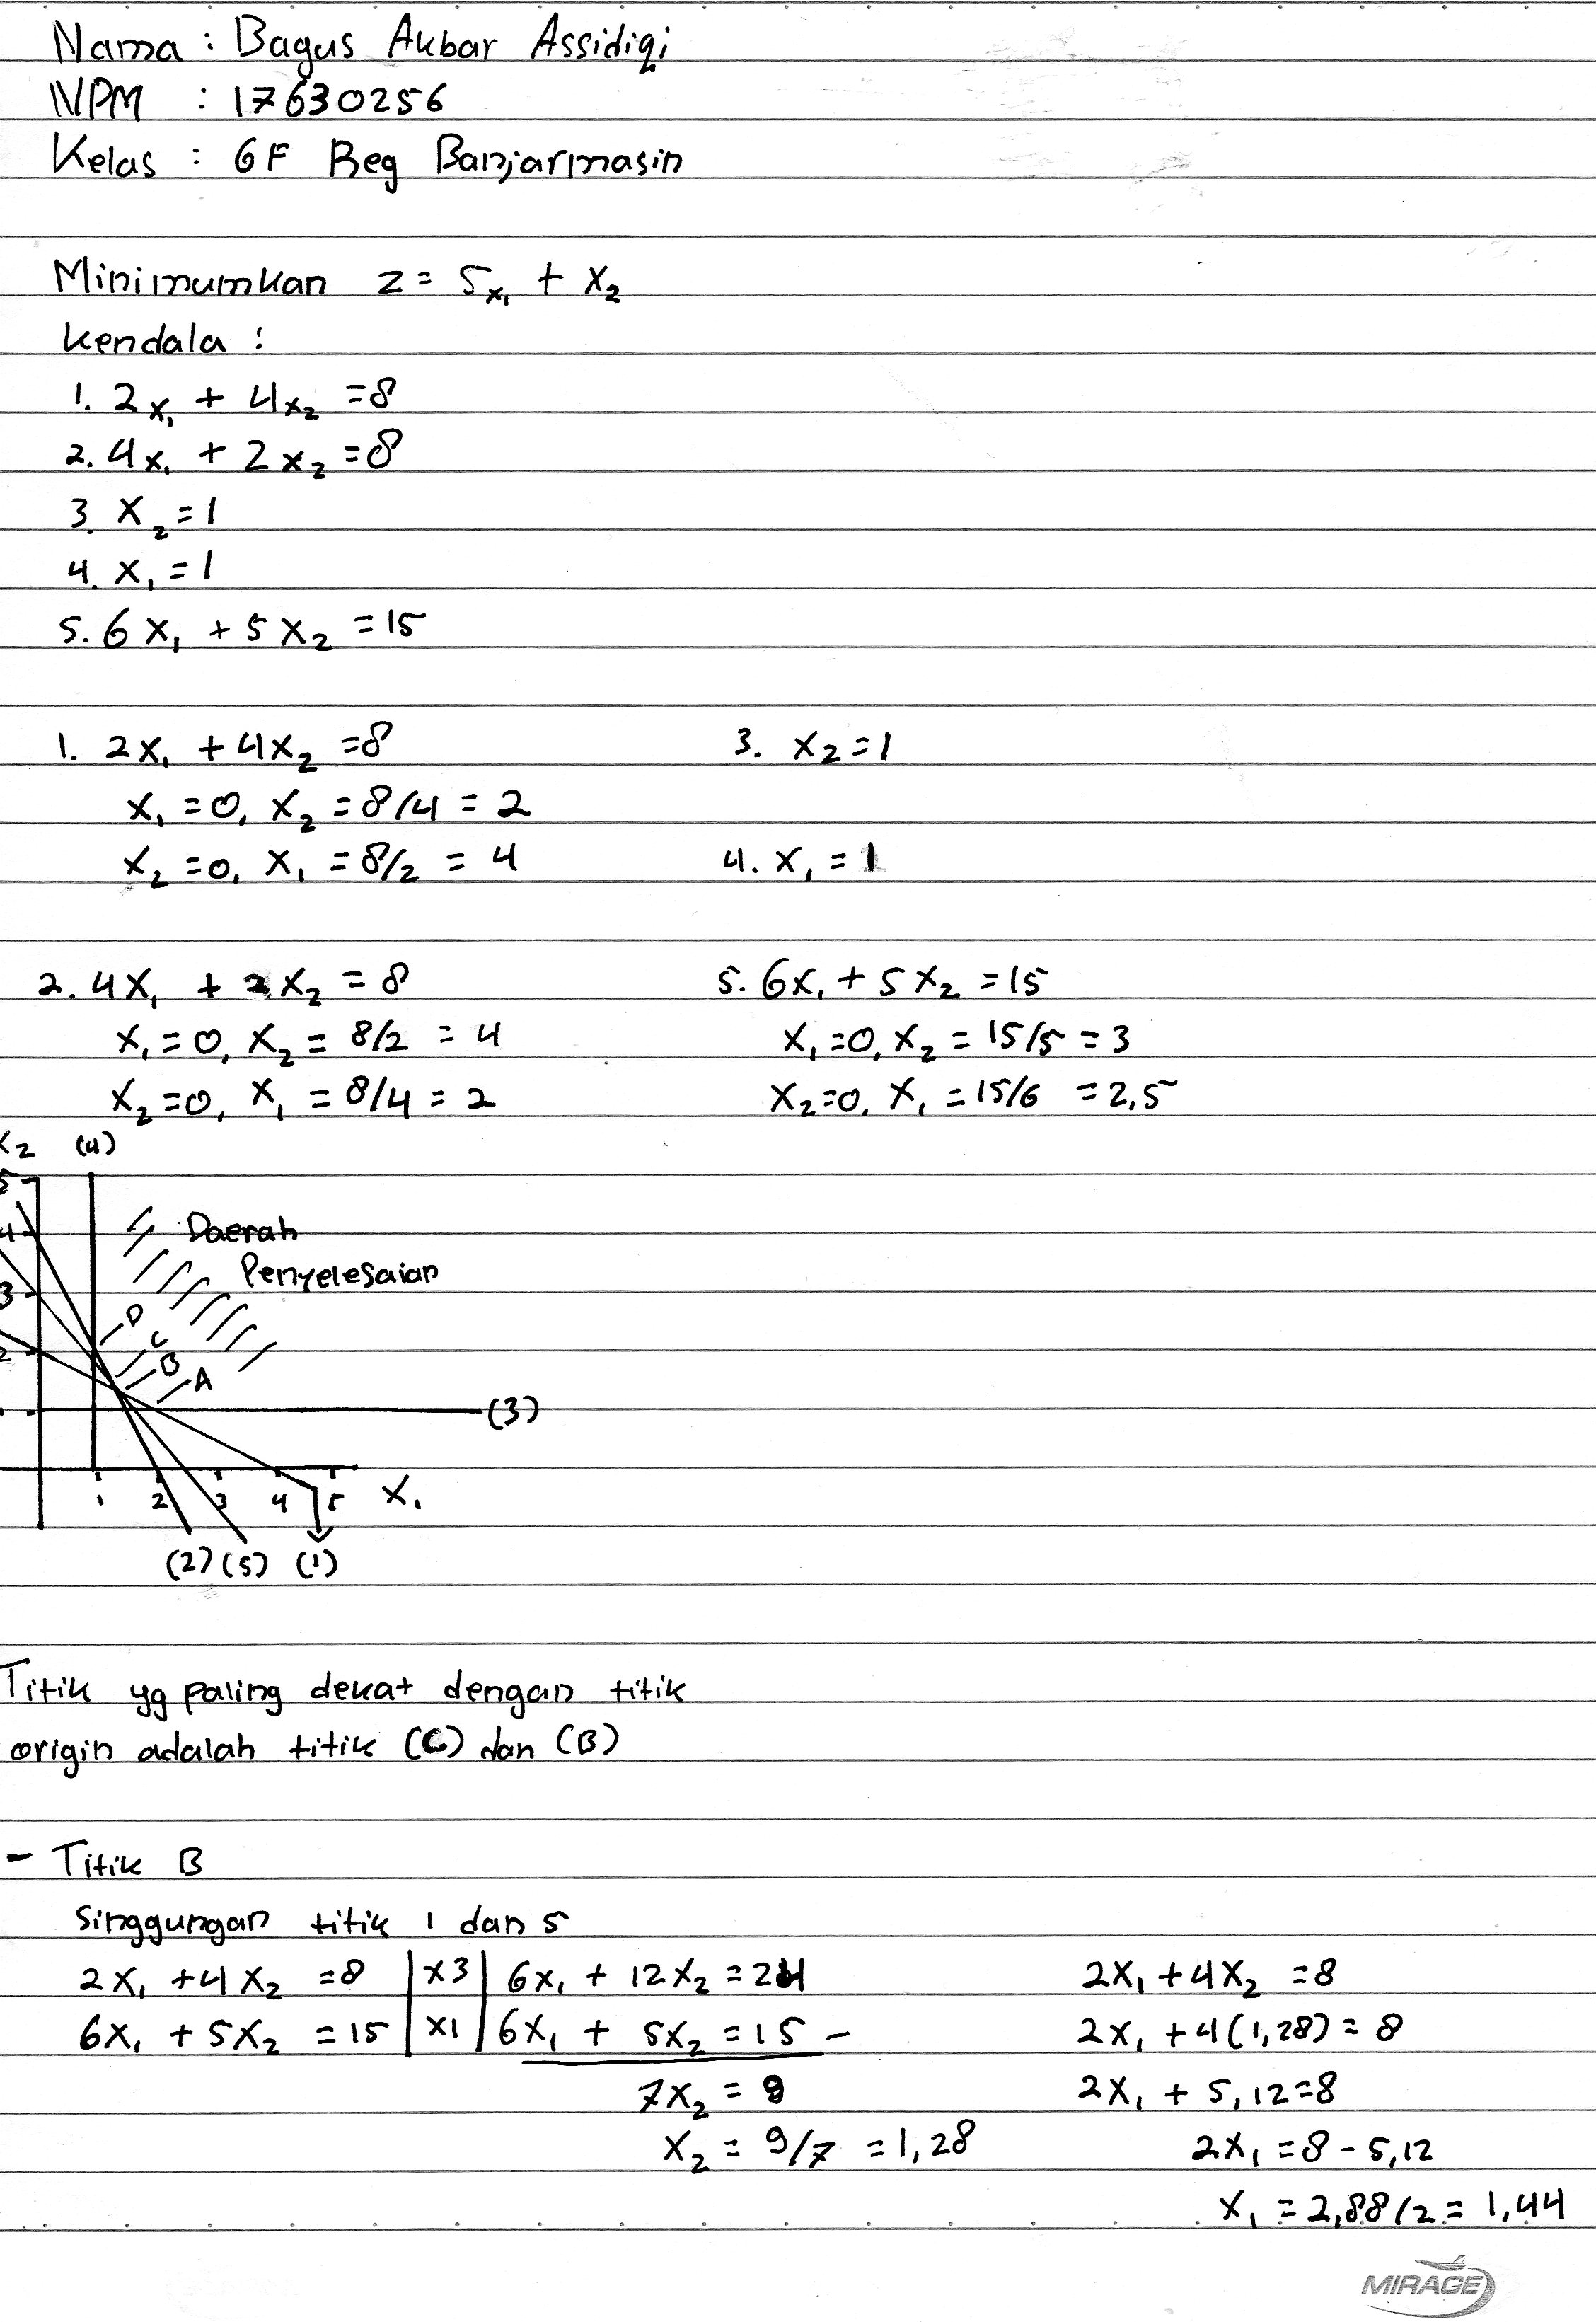 Nama : Bagus Akbar Assidiqi
NPM : 17630256
Kelas : 6F Reg Banjarmasin
Minimumkan z = 5x₁ + x₂
Kendala :
1. 2x₁ + 4x₂ = 8
2. 4x₁ + 2x₂ = 8
3. x₂ = 1
4. x₁ = 1
5. 6x₁ + 5x₂ = 15
1. 2x₁ + 4x₂ = 8
x₁ = 0, x₂ = 8/4 = 2
x₂ = 0, x₁ = 8/2 = 4
3. x₂ = 1
4. x₁ = 1
2. 4x₁ + 2x₂ = 8
x₁ = 0, x₂ = 8/2 = 4
x₂ = 0, x₁ = 8/4 = 2
5. 6x₁ + 5x₂ = 15
x₁ = 0, x₂ = 15/5 = 3
x₂ = 0, x₁ = 15/6 = 2,5
x₂ (4)
5
4
3
2
Daerah
Penyelesaian
D
C
B
A
(3)
1 2 3 4 5 x₁
(2) (5) (1)
Titik yg paling dekat dengan titik
origin adalah titik (C) dan (B)
- Titik B
Singgungan titik 1 dan 5
2x₁ + 4x₂ = 8 | x3 | 6x₁ + 12x₂ = 24
6x₁ + 5x₂ = 15 | x1 | 6x₁ + 5x₂ = 15 -
7x₂ = 9
x₂ = 9/7 = 1,28
2x₁ + 4x₂ = 8
2x₁ + 4(1,28) = 8
2x₁ + 5,12 = 8
2x₁ = 8 - 5,12
x₁ = 2,88/2 = 1,44
MIRAGE